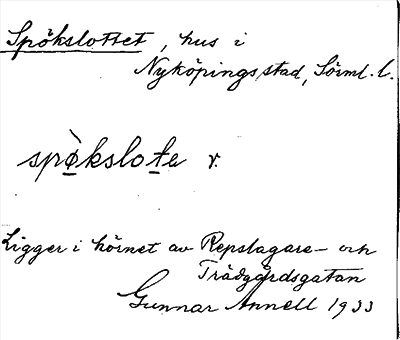 Spökslottet, hus i
Nyköpings stad, Sörml. l.
spø̀kslote r.
Ligger i hörnet av Repslagare- och
Trädgårdsgatan
Gunnar Annell 1933